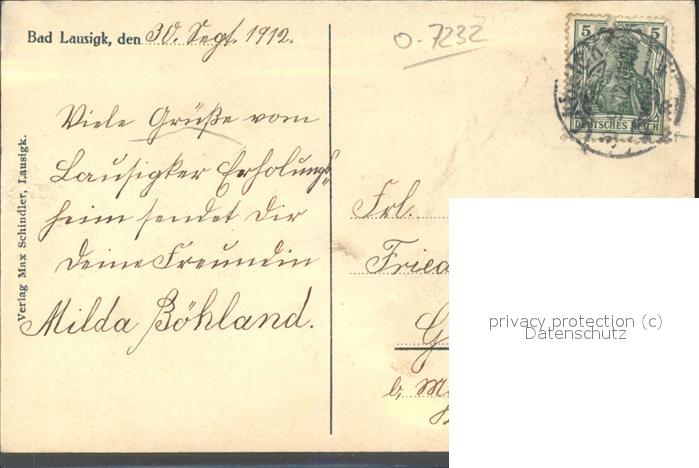 Bad Lausigk, den 30. Sept. 1912.
O-7232
5 5
DEUTSCHES REICH
Viele Grüße vom
Lausigker Erholungs
heim sendet Dir
Deine Freundin
Milda Böhland.
Verlag Max Schindler, Lausigk.
Frl.
Fried
G
b, M
privacy protection (c)
Datenschutz